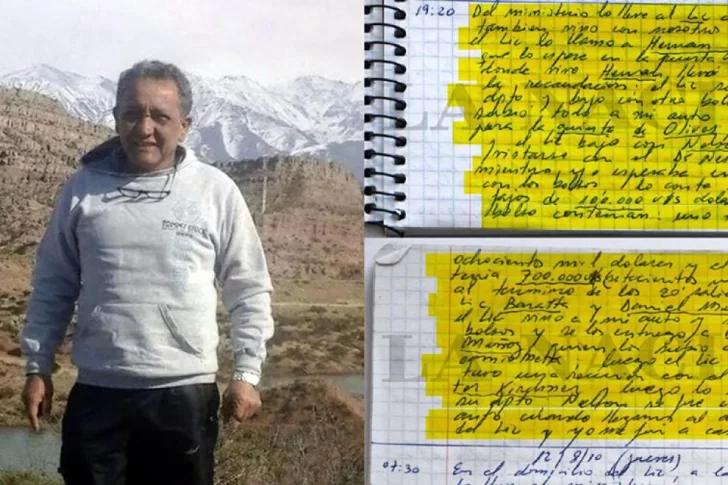 19:20 Del ministerio lo lleve al Lic.
tambien vino con nosotro
el Lic lo llamo a Hernan
que lo espere en la puerta d
donde vive, Hernan, lleva
la recaudacion: el Lic
dpto y bajo con otro bo
subio todo a mi auto
para la quinta de Olivos
el Lic bajo con Nels
con el Dr Ne
mientras yo esperaba
con los bolsos, lo conte
fajos de 100.000 U$S dola
bolso contenian: uno
ochociento mil dolares y el
tenia 700.000U$S(setecientos
al termino de los 20'
Lic Baratta y Daniel M
el Lic vino a mi auto
bolsos y se los entrego a
Muñoz quien los
luego el Lic
tuvo una reunion con el
tor Kirchner y luego lo
su dpto Nelson se fue
auto cuando llegamos al
del Lic y yo me fui a ca
12/8/10 (jueves)
07:30 En el domicilio del Lic, a la
LA NACI
LA NACI